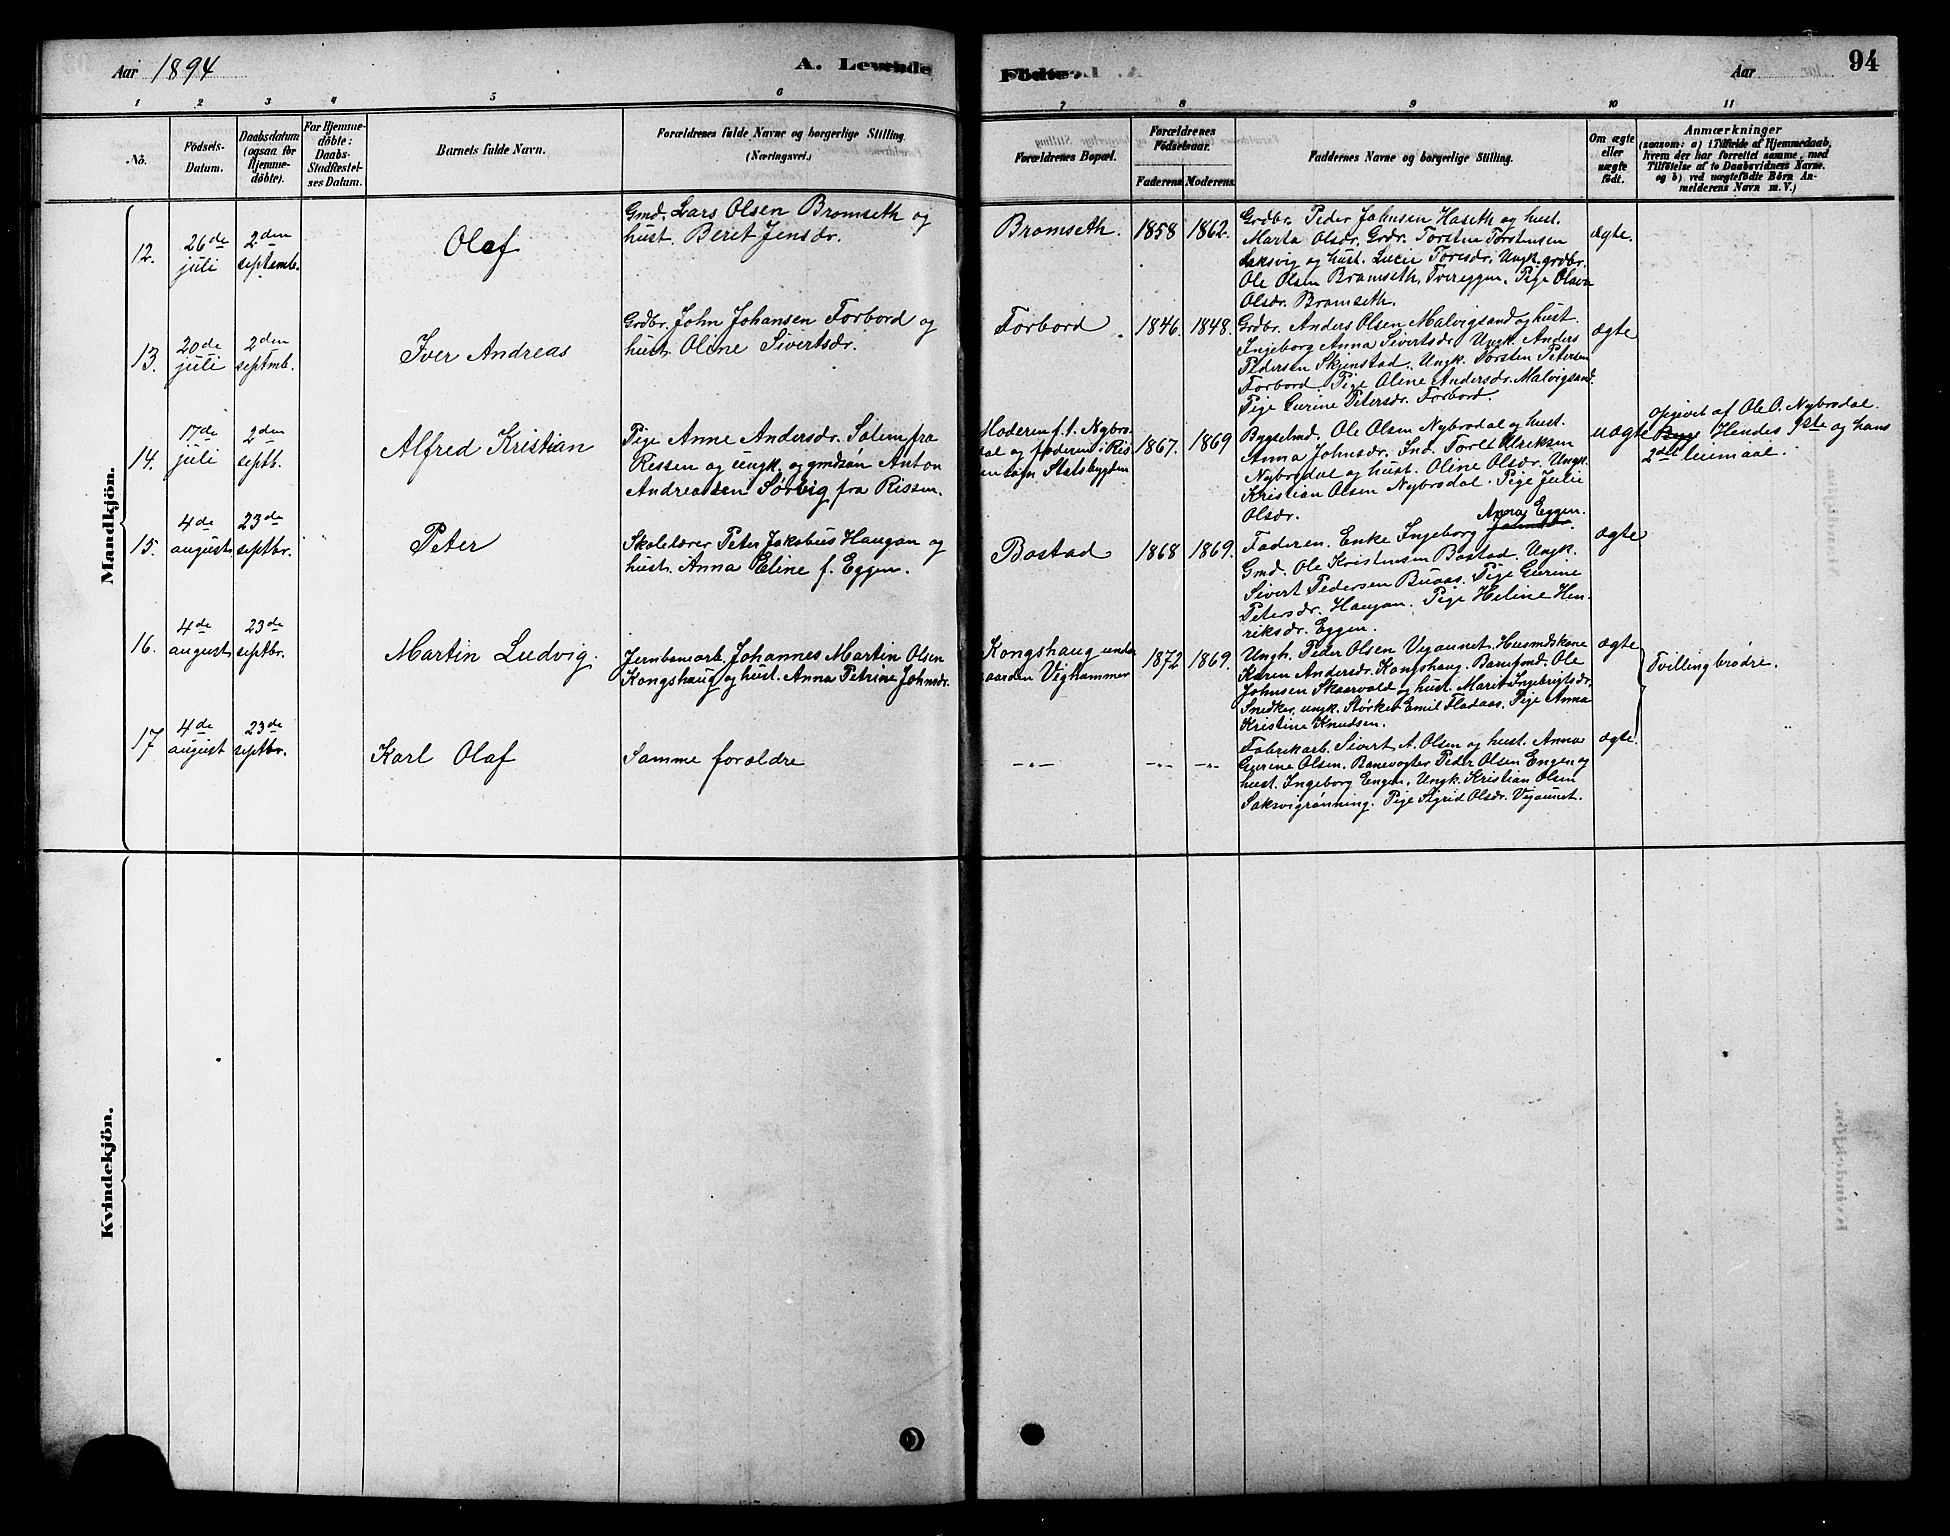 Aar 1894
A. Levende
Fødte.
Aar
94
1 2 3 4 5 6 7 8 9 10 11
No.
Födsels-
Datum.
Daabsdatum
(ogsaa for
Hjemme-
döbte).
For Hjemme-
döbte:
Daabs-
Stadfæstel-
ses Datum.
Barnets fulde Navn.
Forældrenes fulde Navne og borgerlige Stilling.
(Næringsvei.)
Forældrenes Bopæl.
Forældrenes
Födselsaar.
Faderens. Moderens.
Faddernes Navne og borgerlige Stilling.
Om ægte
eller
uægte
født.
Anmærkninger
(saasom: a) i Tilfælde af Hjemmedaab,
hvem der har forrettet samme, med
Tilföielse af to Daabsvidners Navne.
og b) ved uægtefödte Börn An-
melderens Navn m. V.)
Mandkjön.
12.
26de
juli
2den
septemb.
Olaf
Gmd. Lars Olsen Bromseth og
hust. Beret Jensdr.
Bromseth.
1858
1862.
Grdbr. Peder Johnsen Haseth og hust.
Marta Olsdr. Grdr. Torsten Torstensen
Saksvig og hust. Lucie Toresdr. Ungk. grdbr.
Ole Olsen Bromseth, Tvereggen. Pige Olava
Olsdr. Bromseth.
ægte.
13.
20de
juli
2den
septmb.
Iver Andreas
Grdbr. John Johansen Forbord og
hust. Oline Sivertsdr.
Forbord
1846.
1848.
Grdbr. Anders Olsen Malvigsand og hust.
Ingeborg Anna Sivertsdr. Ungk. Anders
Pedersen Skjenstad. Ungk. Torsten Petersen
Forbord. Pige Oline Andersdr. Malvigsand.
Pige Gurine Petersdr. Forbord.
ægte
14.
17de
juli
2den
septb.
Alfred Kristian
Pige Anne Andersdr. Solem fra
Rissen og ungk. og gmdsøn Anton
Andreassen Sørvig fra Rissen.
Moderen f. t. Nybro-
dal og faderen i Ris-
sen Stadsbygden
1867.
1869
Bygselmd. Ole Olsen Nybrodal og hust.
Anna Johnsdr. Ind. Tore Ulriksen
Nybrodal og hust. Oline Olsdr. Ungk.
Kristian Olsen Nybrodal. Pige Julie
Olsdr.
uægte
Opgivet af Ole O. Nybrodal.
Hendes 1ste og hans
2det leiermaal.
15.
4de
august
23de
septbr.
Peter
Skolelærer Peter Jakobus Haugan og
hust. Anna Eline f. Eggen.
Bostad
1868
1869.
Anna Eggen.
Faderen. Enke Ingeborg
Gmd. Ole Kristensen Bostad. Ungk.
Sivert Pedersen Buaas. Pige Gurine
Petersdr. Haugan. Pige Heline Hen-
riksdr. Eggen.
ægte
16.
4de
august
23de
septbr.
Martin Ludvig.
Jernbanearb. Johannes Martin Olsen
Kongshaug og hust. Anna Petrine Johnsdr.
Kongshaug under
gaarden Vighammer
1872
1869.
Ungk. Peter Olsen Vejaunet. Husmdskone
Karen Andersdr. Kongshaug. Baneformd. Ole
Johnsen Skaarvold og hust. Marit Ingebrigtsdr.
Snedker, ungk. Størker Emil Fladaas. Pige Anna
Kristine Knudsen.
ægte
Tvillingbrødre.
17
4de
august
23de
septbr.
Karl Olaf
Samme forældre
—„—
—„—
—„—
Fabrikarb. Sivert A. Olsen og hust. Anna
Gurine Olsen. Banevogter Peder Olsen Engen og
hust. Ingeborg Engen. Ungk. Kristian Olsen
Saksvigrønning. Pige Sigrid Olsdr. Vejaunet.
ægte.
Kvindekjön.